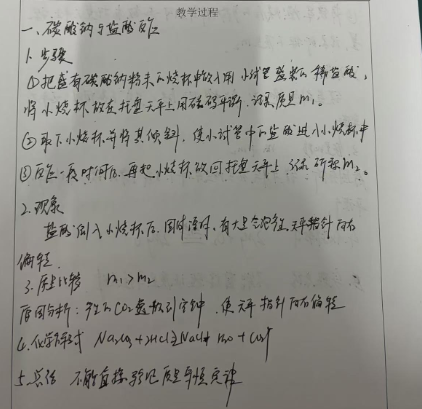 教学过程
一、碳酸钠与盐酸反应
1. 步骤
①把盛有碳酸钠粉末的烧杯中放入用小试管盛装的稀盐酸,
将小烧杯放在托盘天平上用砝码平衡,记录质量m₁。
②取下小烧杯并将其倾斜,使小试管中的盐酸进入小烧杯中
③反应一段时间后,再把小烧杯放回托盘天平上,
m₂。
2. 现象
盐酸倒入小烧杯后,固体溶解,有大量气泡产生,天平指针向右
偏转
3. 质量比较 m₁>m₂
原因分析:产生的CO₂ 使天平指针向右偏转
4. 化学方程式
5. 总结 不能直接验证质量守恒定律